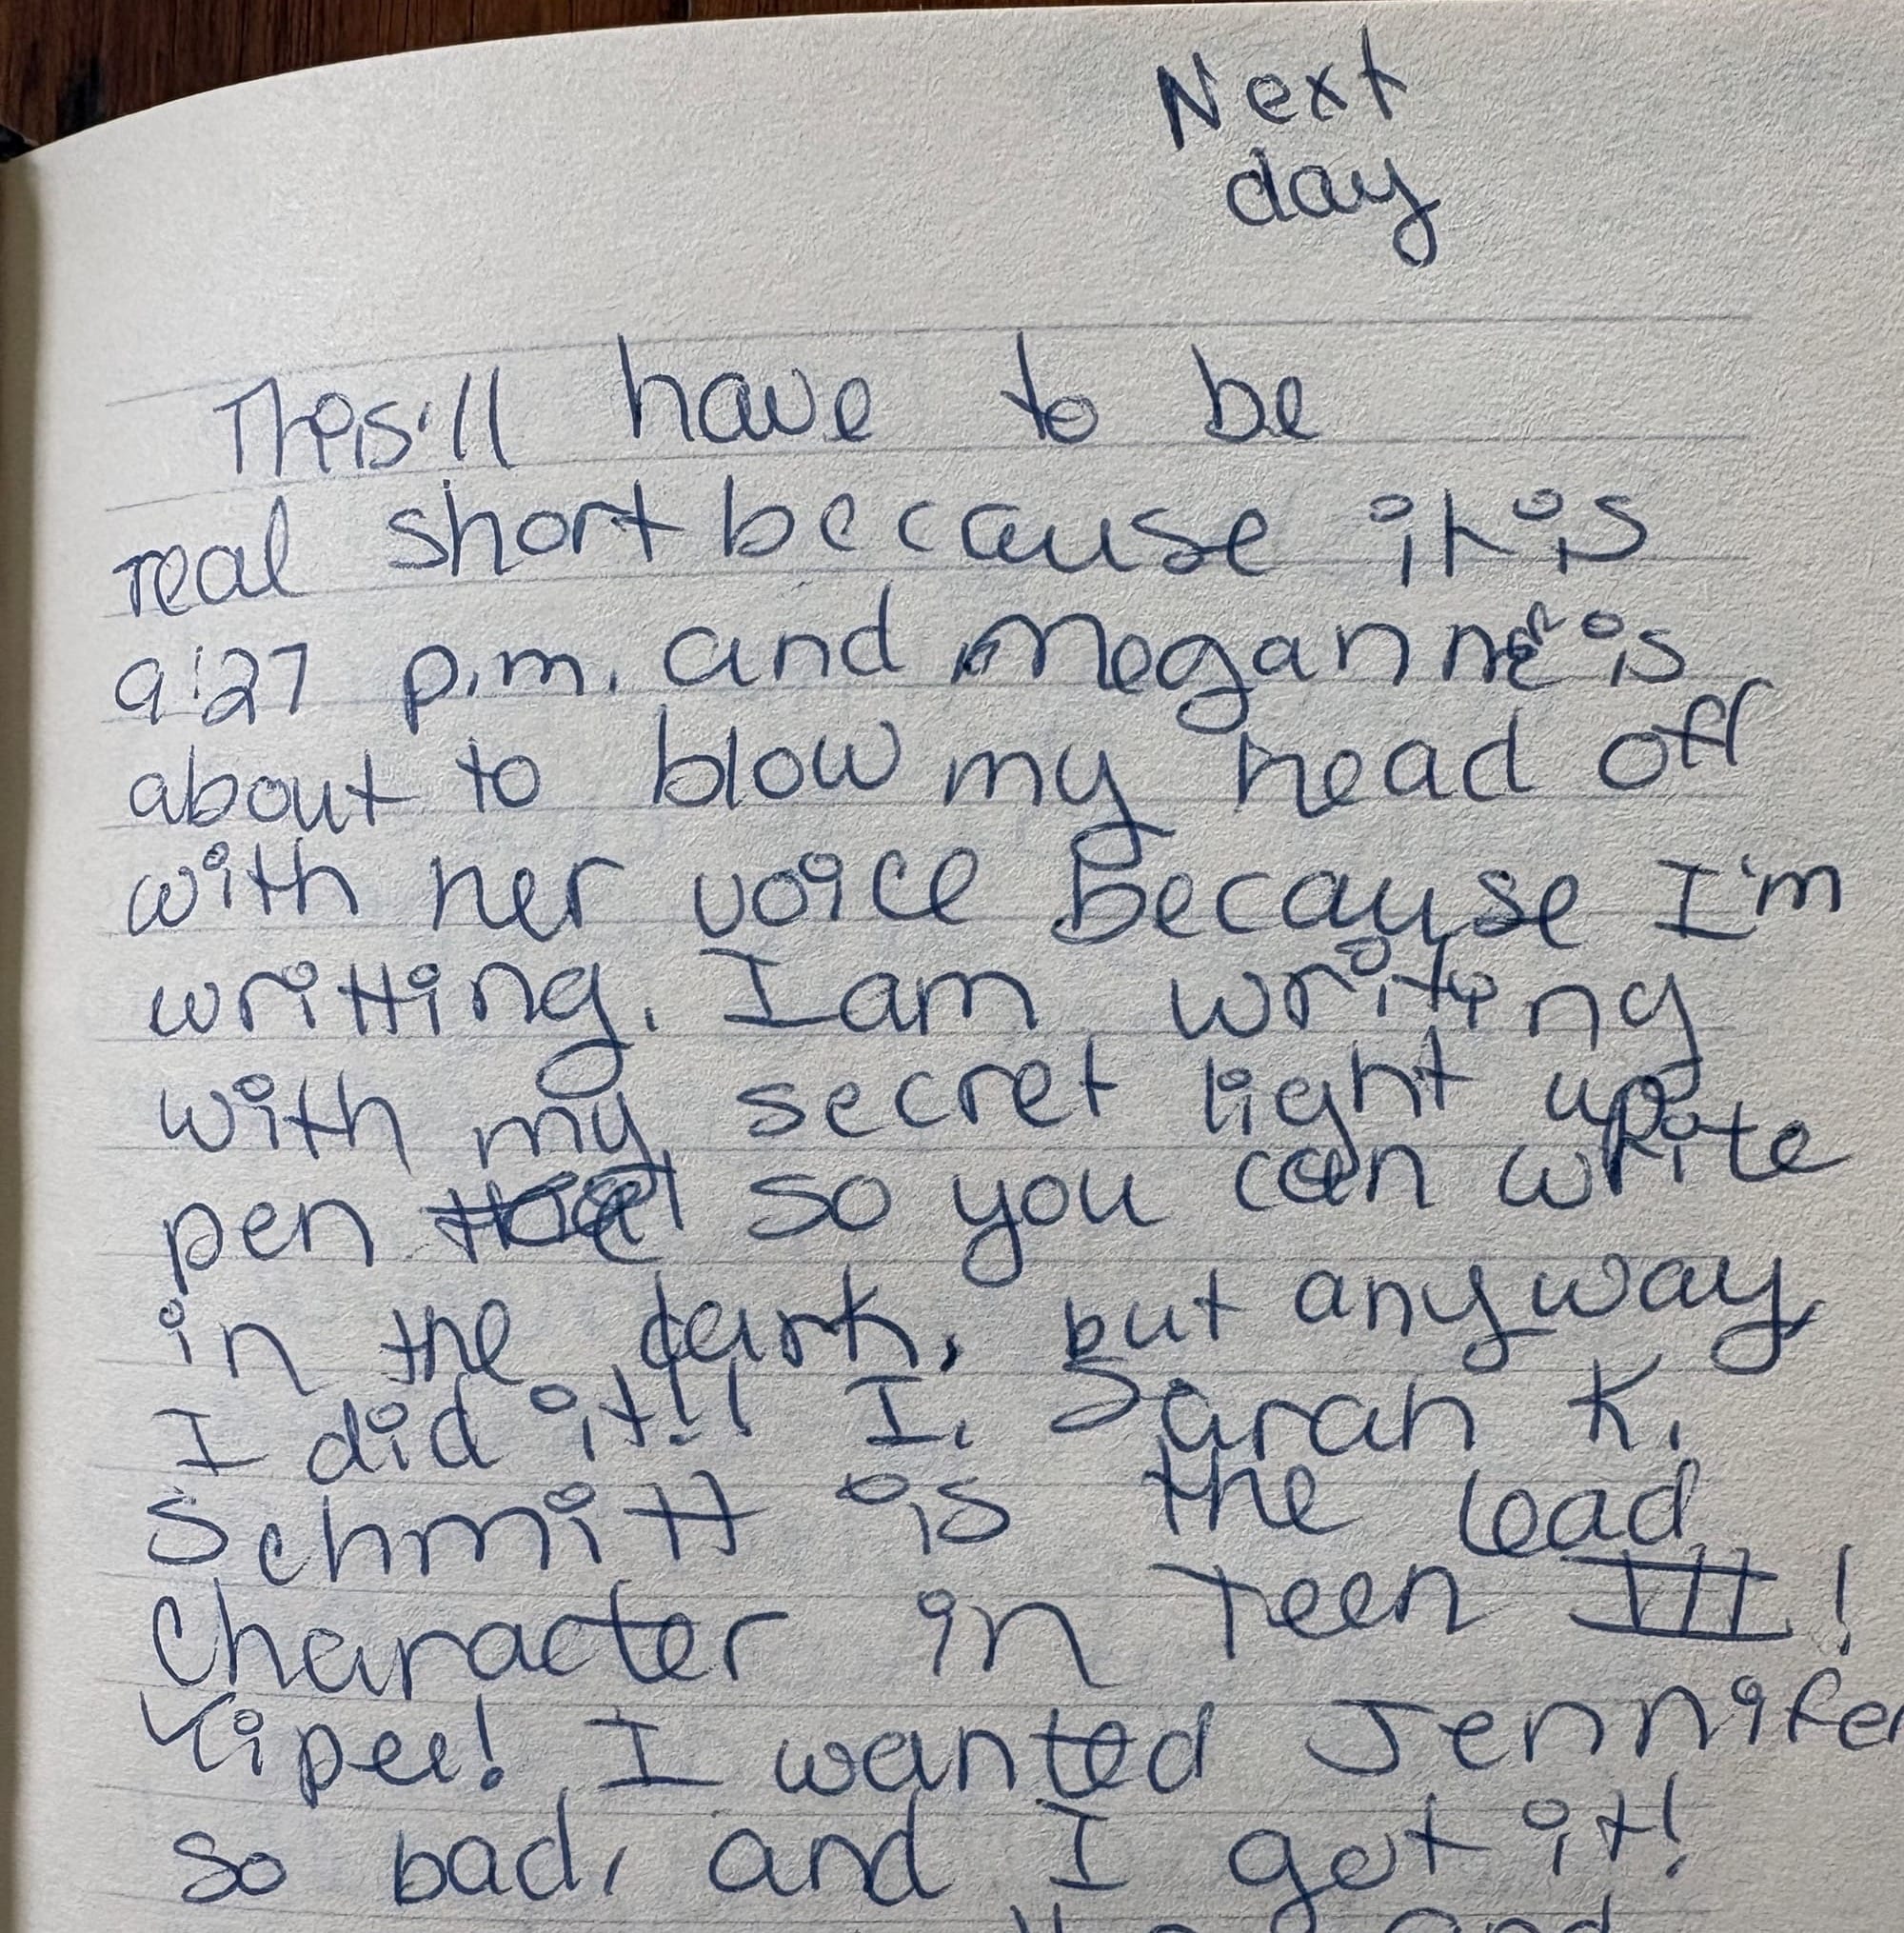 Next
day
This'll have to be
real short because it is
9:27 p.m. and Meganne is
about to blow my head off
with her voice Because I'm
writting. I am writing
with my secret light up
pen so you can write
in the dark, but anyway,
I did it!! I, Sarah K.
Schmitt is the lead
Character in Teen III!
Yipee! I wanted Jennifer
so bad, and I got it!
and